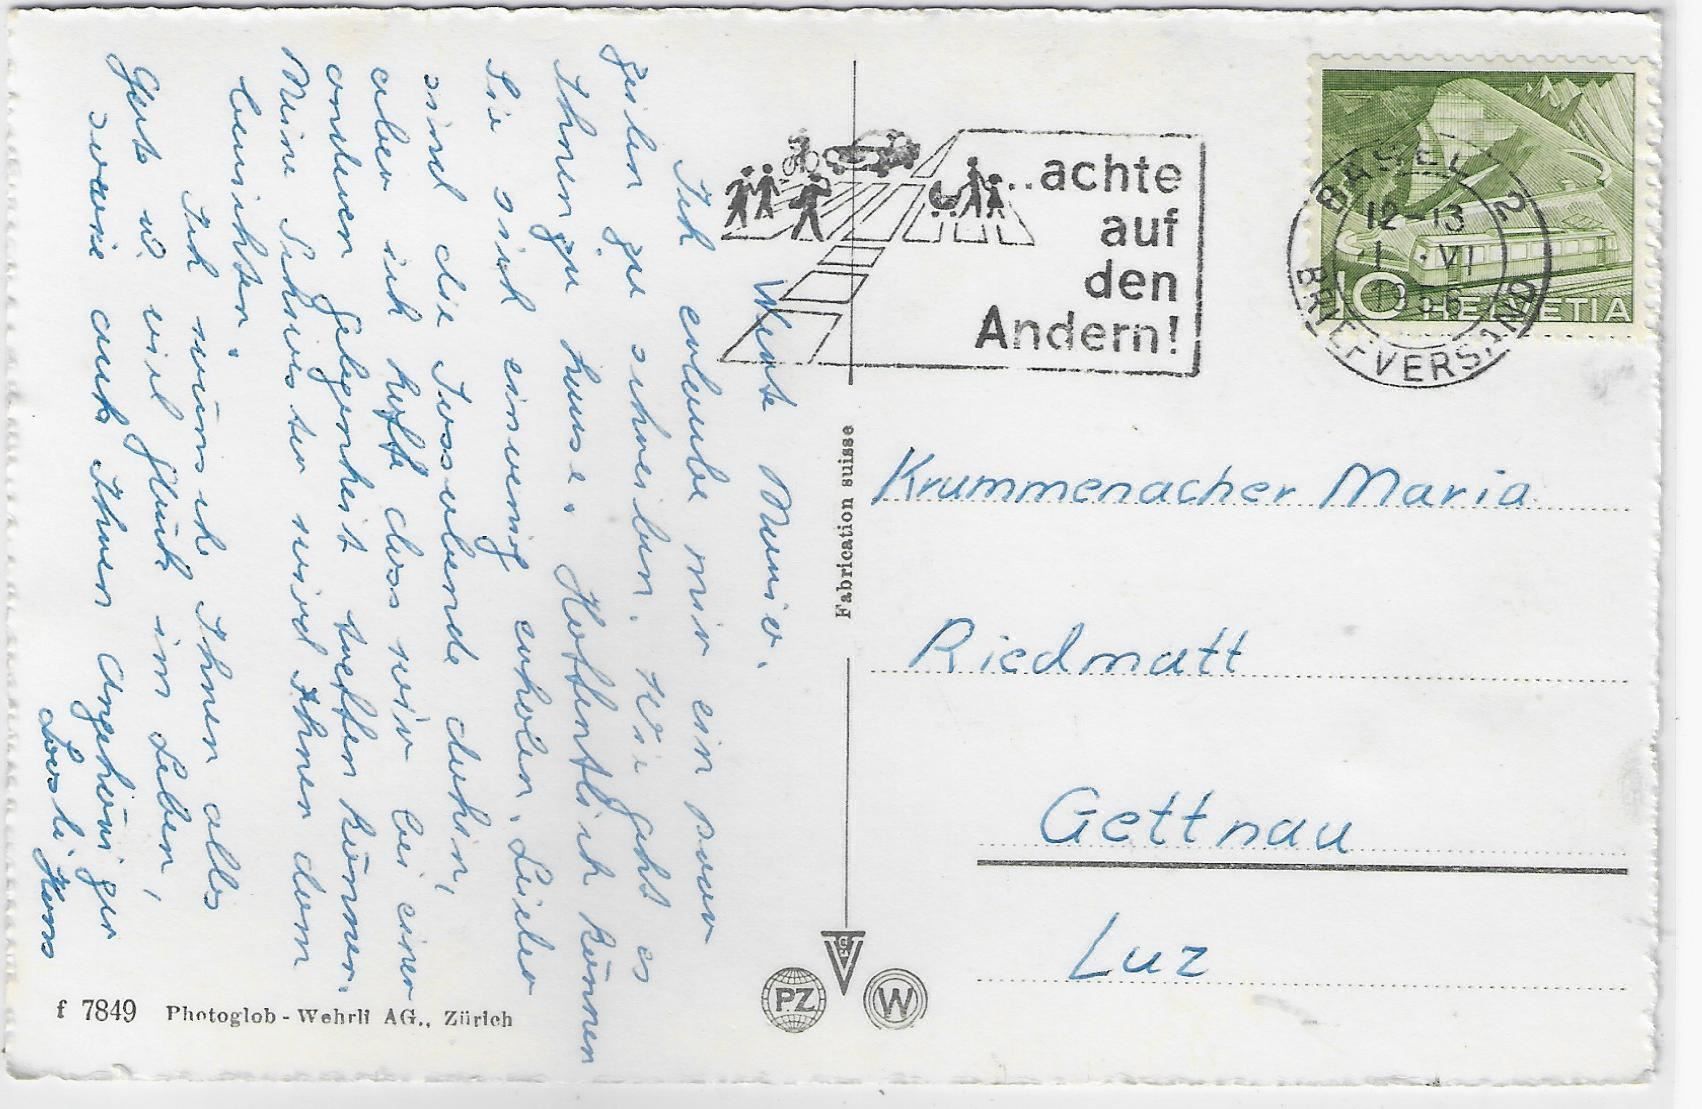 Werte Maria.
Ich erlaube mir ein paar
Zeilen zu schreiben. Wie geht es
Ihnen zu hause. Hoffentlich können
Sie sich einwenig erholen. Leider
sind die Tussabende dahin,
aber ich hoffe dass wir bei einer
anderen gelegenheit treffen können.
Meine Schwester wird Ihnen dann
berichten.
Ich wünsche Ihnen alles
Gute u. viel glück im Leben,
sowie auch Ihnen Angehöriger
Hans
f 7849 Photoglob - Wehrli AG., Zürich
Fabrication suisse
PZ
W
...achte
auf
den
Andern!
BASEL 2
12-13
1. VI
1956
BRIEFVERSAND
10 HELVETIA
Krummenacher Maria
Riedmatt
Gettnau
Luz